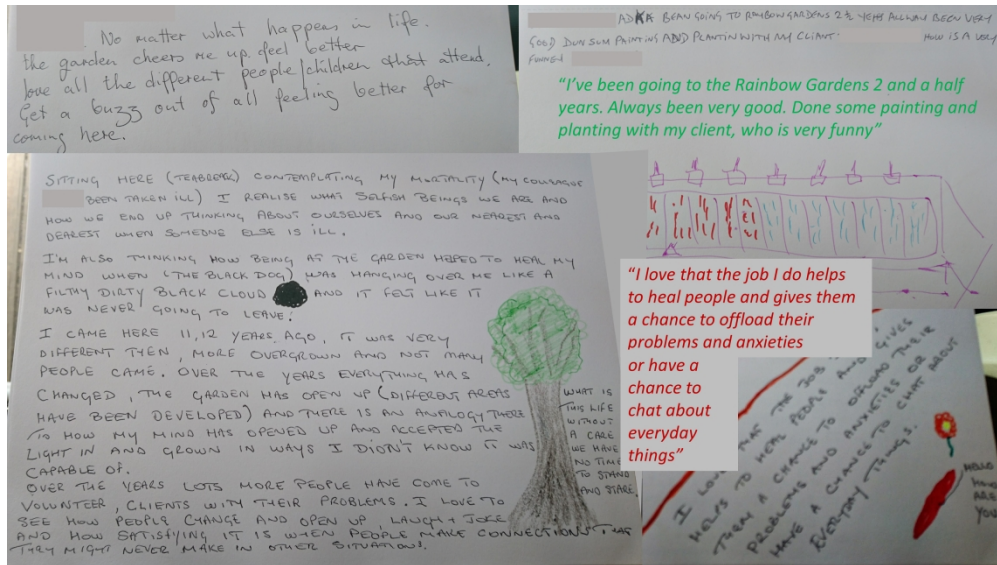 No matter what happens in life.
the garden cheers me up. feel better
love all the different people/children that attend.
Get a buzz out of all feeling better for
coming here.
BEAN GOING TO RAYBOW GARDENS 2½ YEARS ALLWAY BEEN VERY
GOOD DUN SUM PAINTING AND PLANTIN WITH MY CLIENT HOW IS A VERY
FUNNEY
“I’ve been going to the Rainbow Gardens 2 and a half
years. Always been very good. Done some painting and
planting with my client, who is very funny”
SITTING HERE (TEABREAK) CONTEMPLATING MY MORTALITY (MY COLLEAGUE
BEEN TAKEN ILL) I REALISE WHAT SELFISH BEINGS WE ARE AND
HOW WE END UP THINKING ABOUT OURSELVES AND OUR NEAREST AND
DEAREST WHEN SOMEONE ELSE IS ILL.
I'M ALSO THINKING HOW BEING AT THE GARDEN HELPED TO HEAL MY
MIND WHEN (THE BLACK DOG) WAS HANGING OVER ME LIKE A
FILTHY DIRTY BLACK CLOUD AND IT FELT LIKE IT
WAS NEVER GOING TO LEAVE.
I CAME HERE 11,12 YEARS AGO, IT WAS VERY
DIFFERENT THEN, MORE OVERGROWN AND NOT MANY
PEOPLE CAME. OVER THE YEARS EVERYTHING HAS
CHANGED, THE GARDEN HAS OPEN UP (DIFFERENT AREAS
HAVE BEEN DEVELOPED) AND THERE IS AN ANALOGY THERE
TO HOW MY MIND HAS OPENED UP AND ACCEPTED THE
LIGHT IN AND GROWN IN WAYS I DIDN'T KNOW IT WAS
CAPABLE OF.
OVER THE YEARS LOTS MORE PEOPLE HAVE COME TO
VOLUNTEER, CLIENTS WITH THEIR PROBLEMS. I LOVE TO
SEE HOW PEOPLE CHANGE AND OPEN UP, LAUGH + JOKE
AND HOW SATISFYING IT IS WHEN PEOPLE MAKE CONNECTIONS THAT
THEY MIGHT NEVER MAKE IN OTHER SITUATIONS.
WHAT IS
THIS LIFE
WITHOUT
A CARE
WE HAVE
NO TIME
TO STAND
AND STARE.
“I love that the job I do helps
to heal people and gives them
a chance to offload their
problems and anxieties
or have a
chance to
chat about
everyday
things”
I LOVE THAT THE JOB
HELPS TO HEAL PEOPLE AND GIVES
THEM A CHANCE TO OFFLOAD THEIR
PROBLEMS AND ANXIETIES OR
HAVE A CHANCE TO CHAT ABOUT
EVERYDAY THINGS.
HELLO
HOW
ARE
YOU